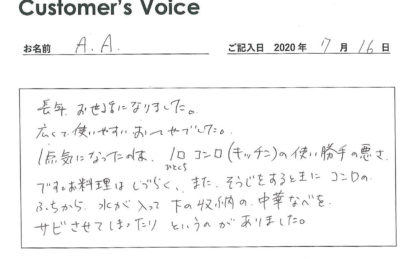 Customer's Voice
お名前 A.A. ご記入日 2020年 7月 16日
長年、お世話になりました。
広くて使いやすいおへやでした。
1点気になったのは、1口コンロ(キッチン)の使い勝手の悪さ
ひとくち
です。お料理はしづらく、また、そうじをするときに コンロの
ふちから、水が入って 下の収納の、中華なべを
サビさせてしまったり というのがありました。